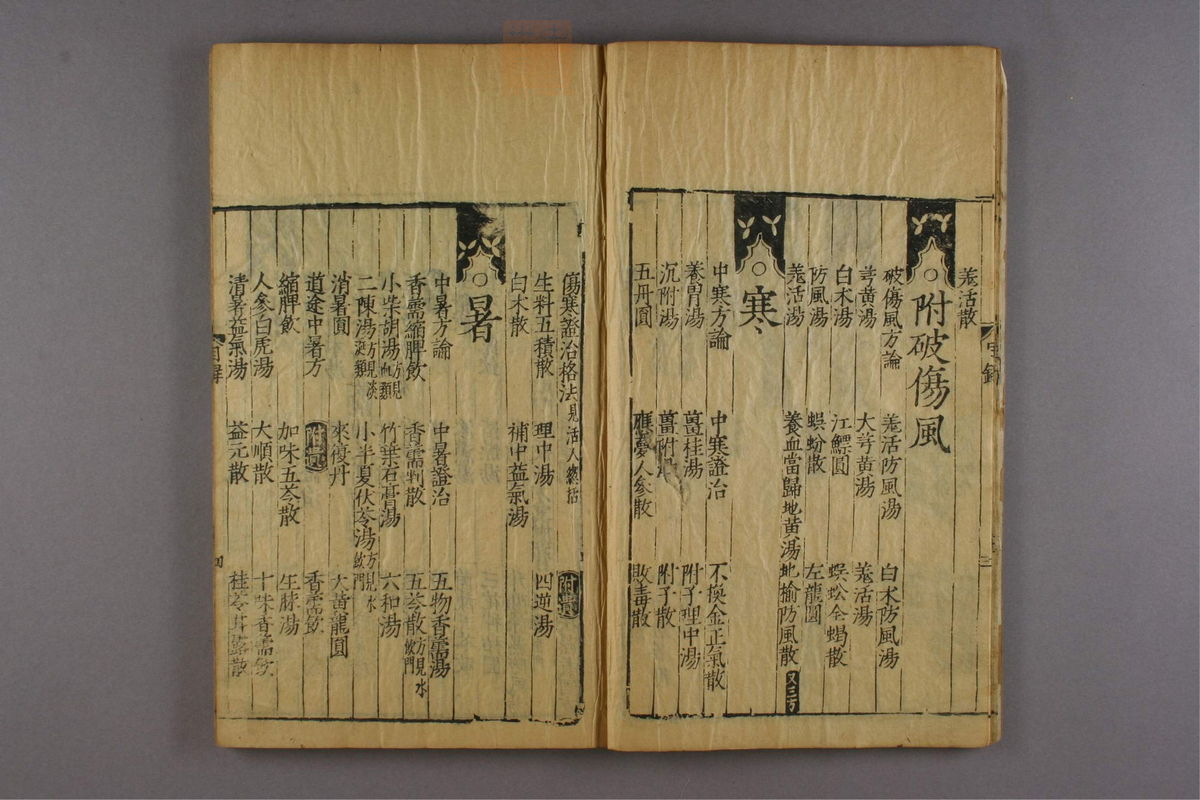 羗活散
附破傷風
破傷風方論 羗活防風湯 白术防風湯
芎黄湯 大芎黄湯 羗活湯
白术湯 江鰾圓 蜈蚣全蝎散
防風湯 蜈蚣散 左龍圓
羗活湯 養血當歸地黄湯 地榆防風散 又三方
寒
中寒方論 中寒證治 不換金正氣散
養胃湯 薑桂湯 附子理中湯
沉附湯 薑附湯 附子散
五丹圓 應夢人參散 敗毒散
傷寒證治格法 見活人總括 附遺
生料五積散 理中湯 四逆湯
白术散 補中益氣湯
暑
中暑方論 中暑證治 五物香薷湯
香薷縮脾飲 香薷判散 五苓散 方見水飲門
小柴胡湯 方見血類 竹葉石膏湯 六和湯
二陳湯 方見痰涎類 小半夏茯苓湯 方見水飲門
消暑圓 來復丹 大黄龍圓
道途中暑方 附遺 香薷飲
縮脾飲 加味五苓散 生脉湯
人參白虎湯 大順散 十味香薷飲
清暑益氣湯 益元散 桂苓甘露散